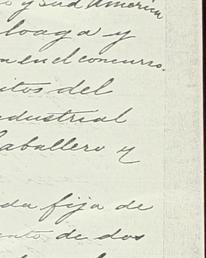 y Sud America
loaga y
en el concurso.
itos del
ndustrial
Caballero y
da fija de
ento de dos